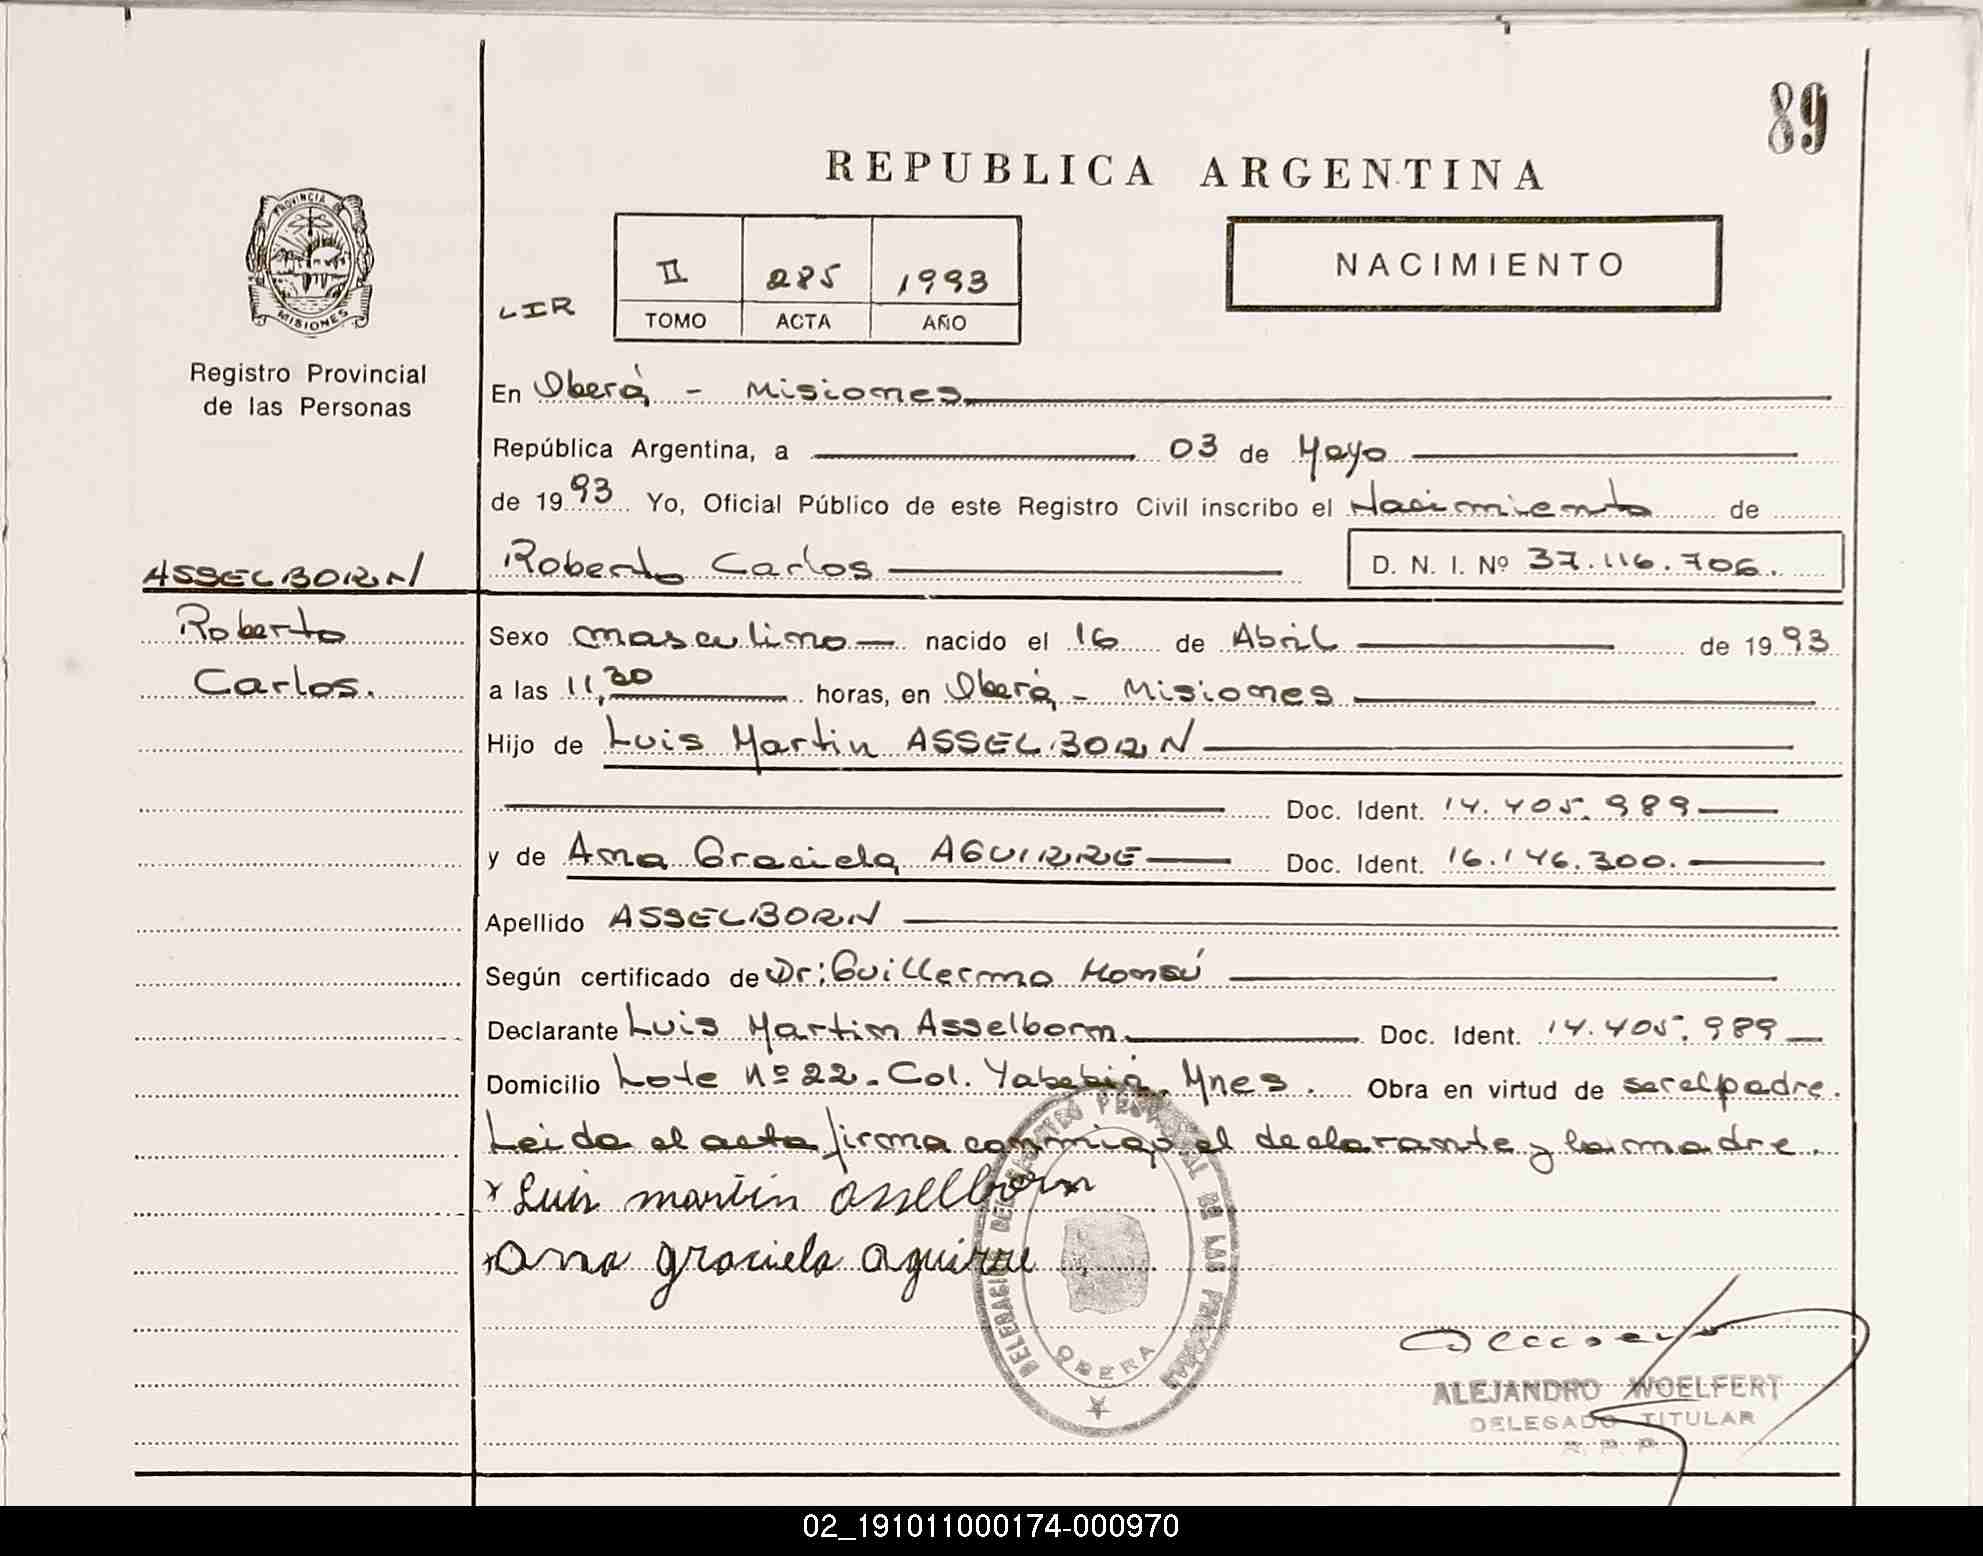 89
REPUBLICA ARGENTINA
PROVINCIA DE
MISIONES
Registro Provincial
de las Personas
NACIMIENTO
LIR
II 285 1993
TOMO ACTA AÑO
En Oberá - Misiones
República Argentina, a 03 de Mayo
de 1993 Yo, Oficial Público de este Registro Civil inscribo el Nacimiento de
Roberto Carlos D. N. I. Nº 37.116.706.
ASSELBORN
Roberto
Carlos.
Sexo masculino nacido el 16 de Abril de 1993
a las 11,30 horas, en Oberá - Misiones
Hijo de Luis Martin ASSELBORN
Doc. Ident. 14.405.989
y de Ana Graciela AGUIRRE Doc. Ident. 16.146.300.
Apellido ASSELBORN
Según certificado de Dr: Guillermo Monsú
Declarante Luis Martin Asselborn Doc. Ident. 14.405.989
Domicilio Lote Nº 22 - Col. Yabebiri, Mnes. Obra en virtud de ser el padre.
Leida el acta firma conmigo el declarante y la madre.
x Luis martin asselborn
x Ana graciela aguirre
DELEGACION DEL REGISTRO PROVINCIAL DE LAS PERSONAS
OBERA
ALEJANDRO WOELFERT
DELEGADO TITULAR
R. P. P.
02_191011000174-000970